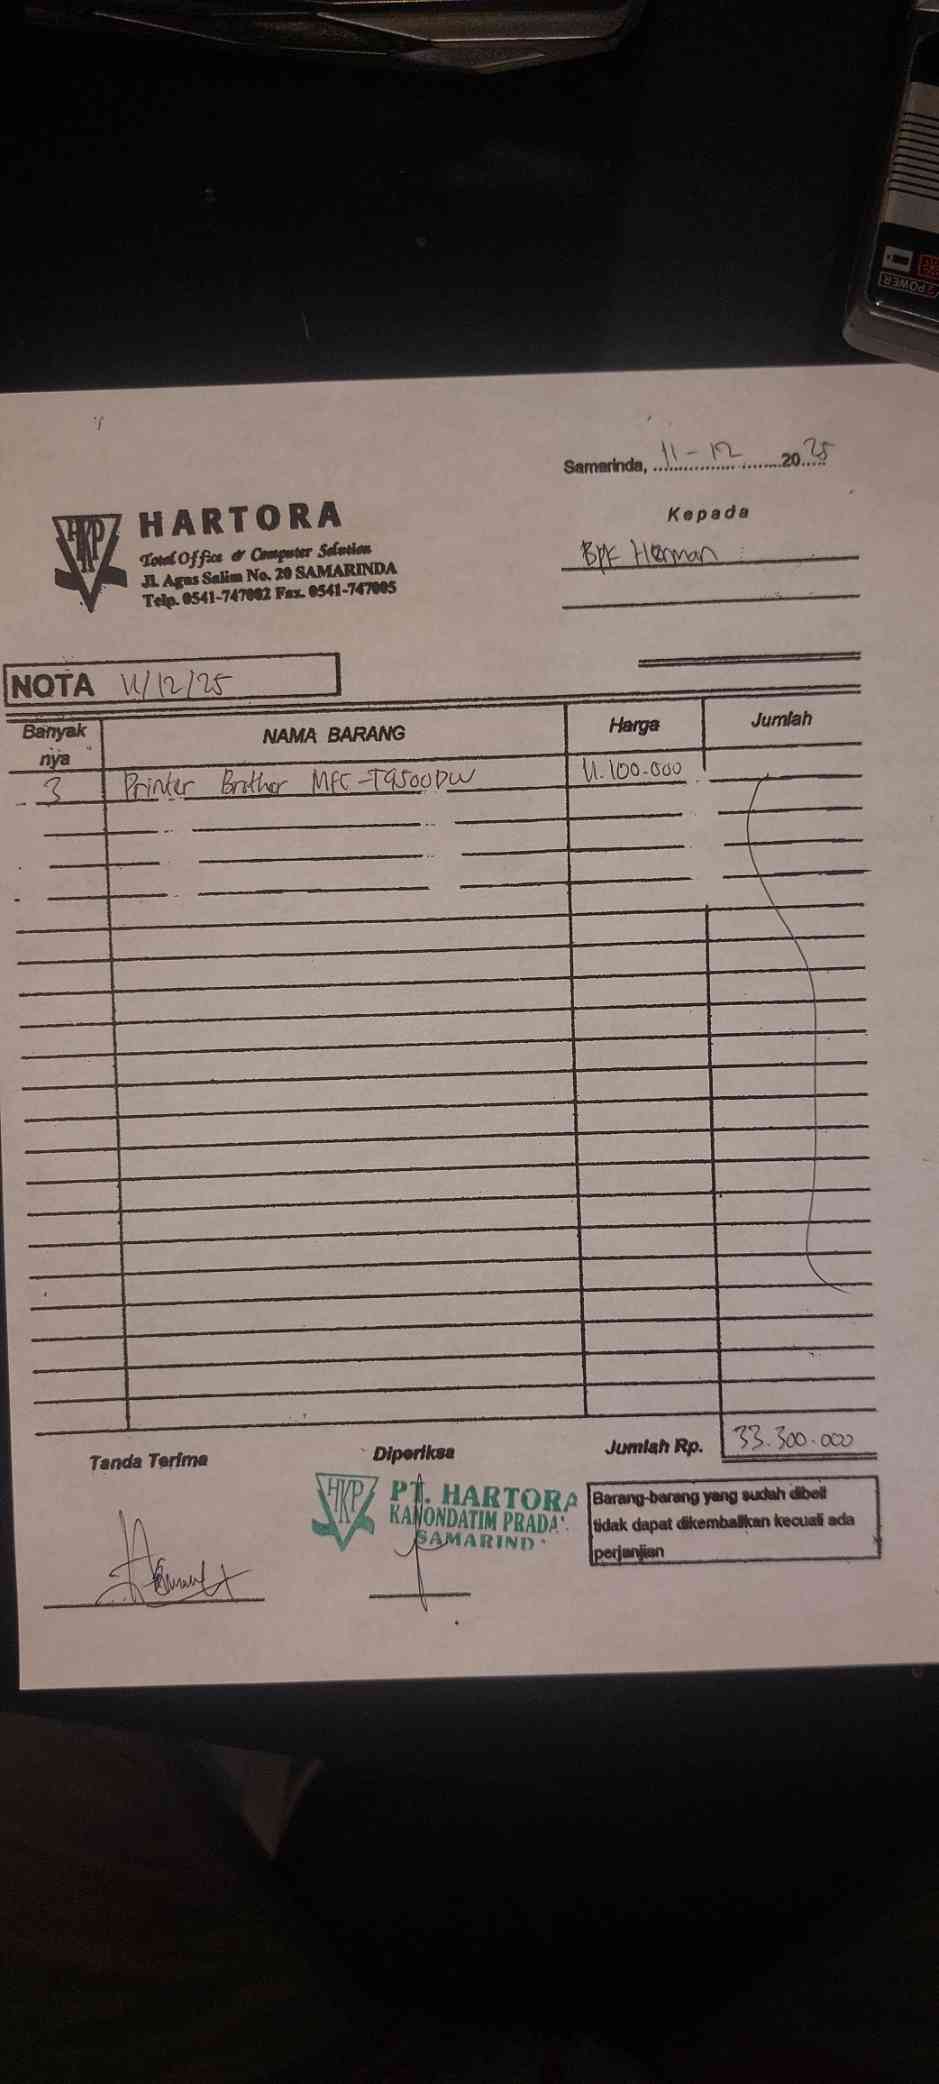 Samarinda, 11 - 12 2025
HARTORA
Total Office & Computer Solution
Jl. Agus Salim No. 20 SAMARINDA
Telp. 0541-747002 Fax. 0541-747005
Kepada
Bpk Herman
NOTA 11/12/25
Banyak nya NAMA BARANG Harga Jumlah
3 Printer Brother MFC-T9500DW 11.100.000
Tanda Terima Diperiksa Jumlah Rp. 33.300.000
PT. HARTORA
KANONDATIM PRADA
SAMARIND
Barang-barang yang sudah dibeli
tidak dapat dikembalikan kecuali ada
perjanjian
POWER